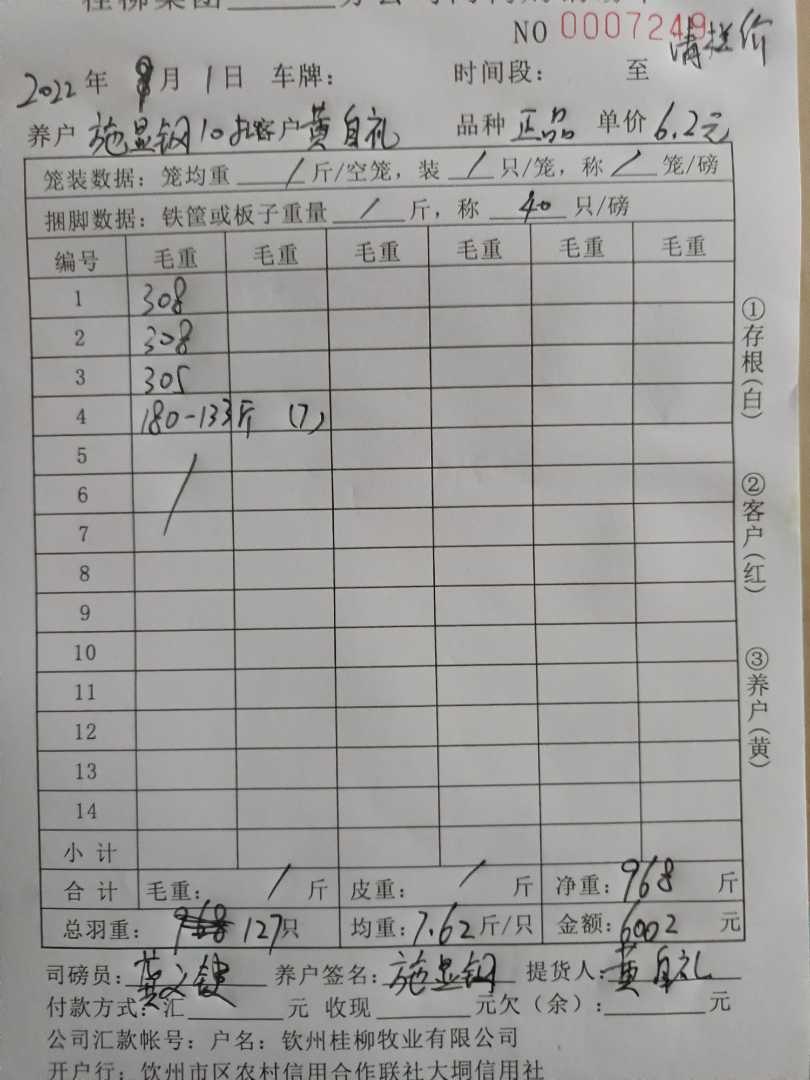 NO 0007249 请批价
2022年 9月 1日 车牌: 时间段: 至
养户 施显钢10批客户 黄自礼 品种 正品 单价 6.2元
笼装数据: 笼均重 / 斤/空笼, 装 / 只/笼, 称 / 笼/磅
捆脚数据: 铁筐或板子重量 / 斤, 称 40 只/磅
编号 毛重 毛重 毛重 毛重 毛重 毛重
1 308
2 308
3 305
4 180-133斤 (7)
5
6 /
7
8
9
10
11
12
13
14
小 计
合 计 毛重: / 斤 皮重: / 斤 净重: 968 斤
总羽重: 968 127只 均重: 7.62斤/只 金额: 6002 元
司磅员: 黄 养户签名: 施显钢 提货人: 黄自礼
付款方式: 汇 元 收现 元欠(余): 元
公司汇款帐号: 户名: 钦州桂柳牧业有限公司
开户行: 钦州市区农村信用合作联社大垌信用社
①存根(白)
②客户(红)
③养户(黄)